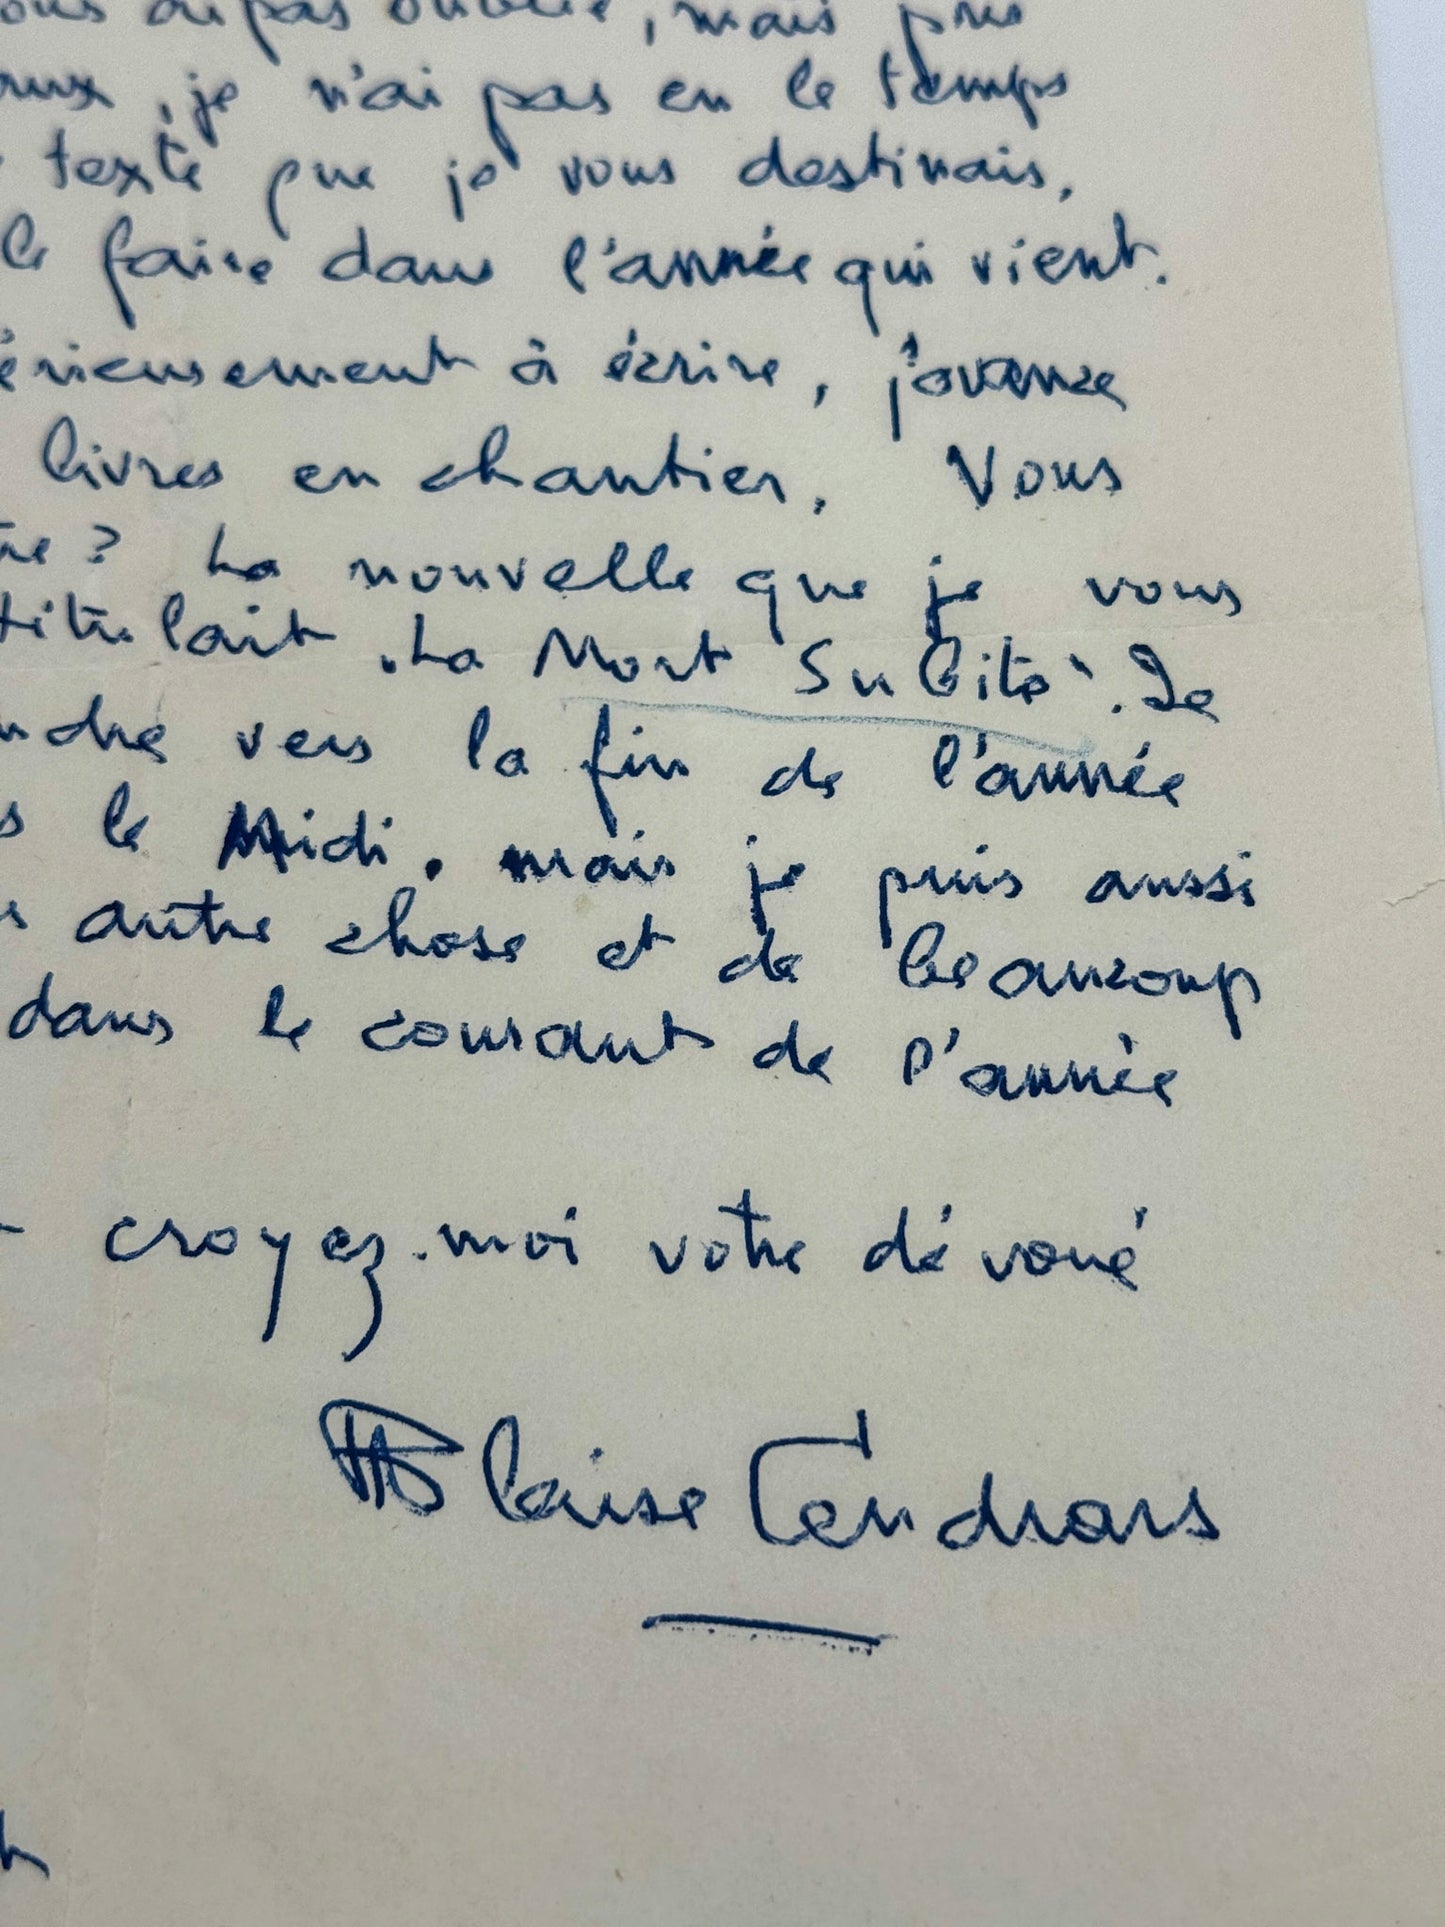 ous ai pas oublié, mais pris
aux, je n'ai pas eu le temps
texte que je vous destinais,
le faire dans l'année qui vient.
érieusement à écrire, j'avance
livres en chantier. Vous
tre ? La nouvelle que je vous
titulait "La Mort Subite". Je
ndre vers la fin de l'année
s le Midi. mais je puis aussi
s autre chose et de beaucoup
dans le courant de l'année
croyez-moi votre dévoué
Blaise Cendrars